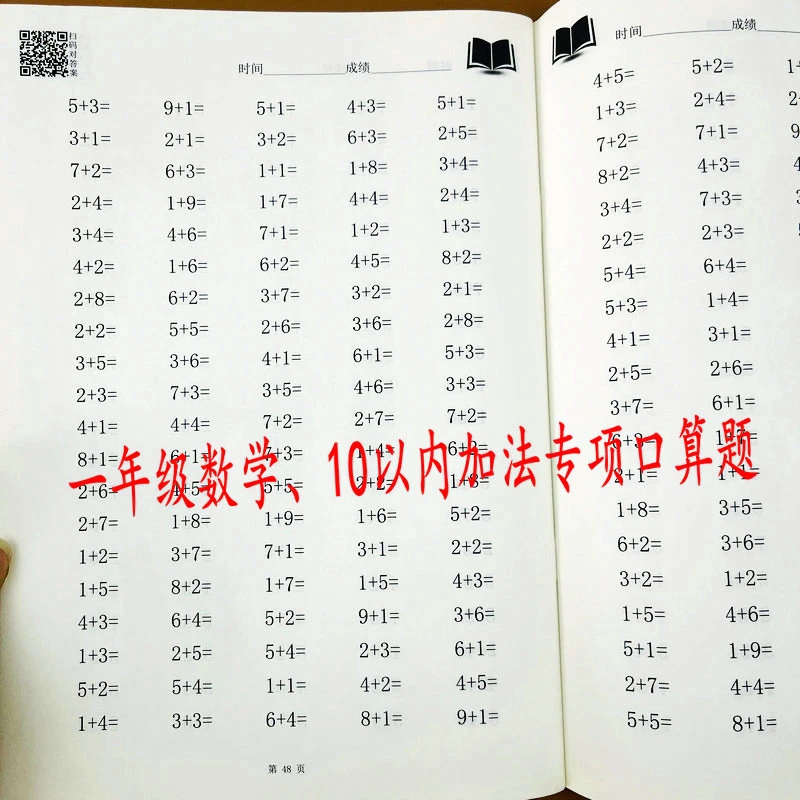 扫码对答案
时间 成绩
5+3= 9+1= 5+1= 4+3= 5+1=
3+1= 2+1= 3+2= 6+3= 2+5=
7+2= 6+3= 1+1= 1+8= 3+4=
2+4= 1+9= 1+7= 4+4= 2+4=
3+4= 4+6= 7+1= 1+2= 1+3=
4+2= 1+6= 6+2= 4+5= 8+2=
2+8= 6+2= 3+7= 3+2= 2+1=
2+2= 5+5= 2+6= 3+6= 2+8=
3+5= 3+6= 4+1= 6+1= 5+3=
2+3= 7+3= 3+5= 4+6= 3+3=
4+1= 4+4= 7+2= 2+7= 7+2=
8+1= 6+1= 7+3= 1+4=
2+6= 4+5= 5+5= 2+2= 1+8=
2+7= 1+8= 1+9= 1+6= 5+2=
1+2= 3+7= 7+1= 3+1= 2+2=
1+5= 8+2= 1+7= 1+5= 4+3=
4+3= 6+4= 5+2= 9+1= 3+6=
1+3= 2+5= 5+4= 2+3= 6+1=
5+2= 5+4= 1+1= 4+2= 4+5=
1+4= 3+3= 6+4= 8+1= 9+1=
第 48 页
时间 成绩
4+5= 5+2=
1+3= 2+4=
7+2= 7+1=
8+2= 4+3=
3+4= 7+3=
2+2= 2+3=
5+4= 6+4=
5+3= 1+4=
4+1= 3+1=
2+5= 2+6=
3+7= 6+1=
6+3= 1+7=
8+1= 1+1=
1+8= 3+5=
6+2= 3+6=
3+2= 1+2=
1+5= 4+6=
5+1= 1+9=
2+7= 4+4=
5+5= 8+1=
一年级数学、10以内加法专项口算题